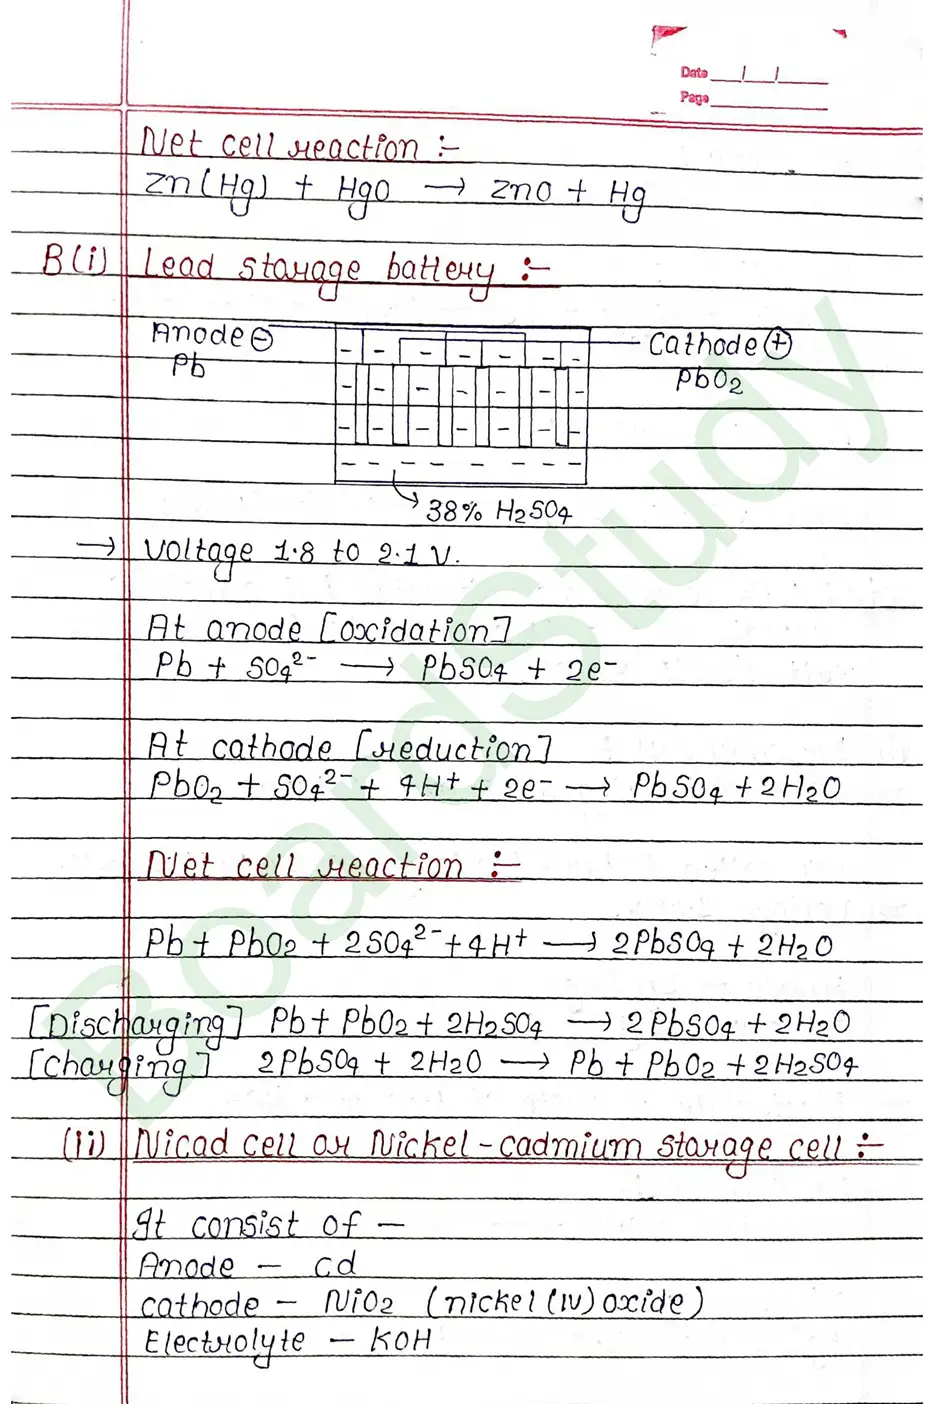 Date __/__/____
Page ________
Net cell reaction :-
Zn(Hg) + HgO → ZnO + Hg
B(i) Lead storage battery :-
Anode ⊖
Pb
Cathode ⊕
PbO₂
38% H₂SO₄
→ Voltage 1.8 to 2.1 V.
At anode [oxidation]
Pb + SO₄²⁻ → PbSO₄ + 2e⁻
At cathode [reduction]
PbO₂ + SO₄²⁻ + 4H⁺ + 2e⁻ → PbSO₄ + 2H₂O
Net cell reaction :-
Pb + PbO₂ + 2SO₄²⁻ + 4H⁺ → 2PbSO₄ + 2H₂O
[Discharging] Pb + PbO₂ + 2H₂SO₄ → 2PbSO₄ + 2H₂O
[Charging] 2PbSO₄ + 2H₂O → Pb + PbO₂ + 2H₂SO₄
(ii) Nicad cell or Nickel-cadmium storage cell :-
It consist of -
Anode - Cd
cathode - NiO₂ (nickel (IV) oxide)
Electrolyte - KOH
BoardStudy